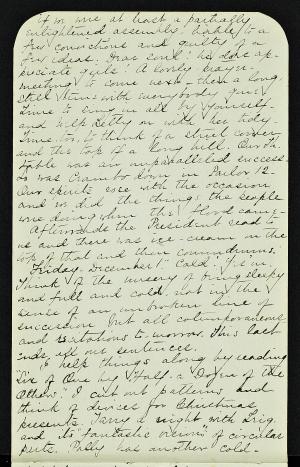 if we were at least a partially
enlightened assembly, liable to a
few convictions and guilty of a
few ideas. Grae could
preciate quite! A lovely
meeting to come next - then a long,
still time with everybody gone
time to sing in all by yourself
and help Betty or with her tidy.
Time, too, to think of a street corner
and the top of a long hill. Our th
table was an unparalleled success.
as was Crambo down in Parlor 12.
Our spirits rose with the occasion
and we did the things the people
were doing when the flood came -
Afterwards the President read to
us and there was ice-cream on the
top of that and then conundrums.
Friday. December 1. Cold!
Think of the misery of being sleepy
and full and cold, not in the
sense of an unbroken line of
succession but all cotemporaneous
and recitations to-morrow. This last
ends all our sentences.
I help things along by reading
"Six of One by Half-a-Dozen of the
Others." I cut out patterns and
think of devices for Christmas
presents. Tarry a night with
and its "fantastic vicious" of circular
Polly has another cold-